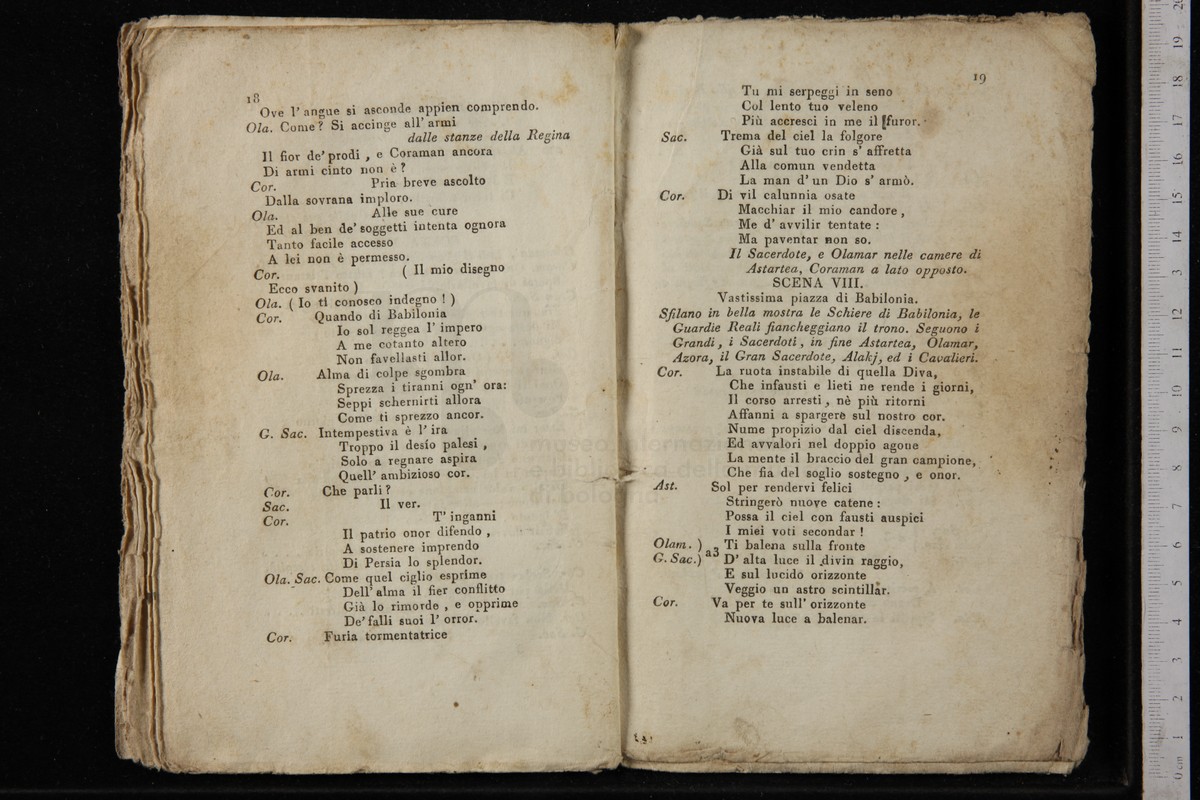 18
Ove l' angue si asconde appien comprendo.
Ola. Come? Si accinge all' armi
dalle stanze della Regina
Il fior de' prodi , e Coraman ancora
Di armi cinto non è ?
Cor. Pria breve ascolto
Dalla sovrana imploro.
Ola. Alle sue cure
Ed al ben de' soggetti intenta ognora
Tanto facile accesso
A lei non è permesso.
Cor. ( Il mio disegno
Ecco svanito )
Ola. ( Io ti conosco indegno ! )
Cor. Quando di Babilonia
Io sol reggea l' impero
A me cotanto altero
Non favellasti allor.
Ola. Alma di colpe sgombra
Sprezza i tiranni ogn' ora:
Seppi schernirti allora
Come ti sprezzo ancor.
G. Sac. Intempestiva è l' ira
Troppo il desío palesi ,
Solo a regnare aspira
Quell' ambizioso cor.
Cor. Che parli ?
Sac. Il ver.
Cor. T' inganni
Il patrio onor difendo ,
A sostenere imprendo
Di Persia lo splendor.
Ola. Sac. Come quel ciglio esprime
Dell' alma il fier conflitto
Già lo rimorde , e opprime
De' falli suoi l' orror.
Cor. Furia tormentatrice
19
Tu mi serpeggi in seno
Col lento tuo veleno
Più accresci in me il furor.
Sac. Trema del ciel la folgore
Già sul tuo crin s' affretta
Alla comun vendetta
La man d' un Dio s' armò.
Cor. Di vil calunnia osate
Macchiar il mio candore ,
Me d' avvilir tentate :
Ma paventar non so.
Il Sacerdote, e Olamar nelle camere di
Astartea, Coraman a lato opposto.
SCENA VIII.
Vastissima piazza di Babilonia.
Sfilano in bella mostra le Schiere di Babilonia, le
Guardie Reali fiancheggiano il trono. Seguono i
Grandi , i Sacerdoti , in fine Astartea, Olamar,
Azora, il Gran Sacerdote, Alakj, ed i Cavalieri.
Cor. La ruota instabile di quella Diva,
Che infausti e lieti ne rende i giorni,
Il corso arresti , nè più ritorni
Affanni a spargere sul nostro cor.
Nume propizio dal ciel discenda,
Ed avvalori nel doppio agone
La mente il braccio del gran campione,
Che fia del soglio sostegno , e onor.
Ast. Sol per rendervi felici
Stringerò nuove catene :
Possa il ciel con fausti auspici
I miei voti secondar !
Olam. ) Ti balena sulla fronte
G. Sac.) a3 D' alta luce il divin raggio,
E sul lucido orizzonte
Veggio un astro scintillar.
Cor. Va per te sull' orizzonte
Nuova luce a balenar.